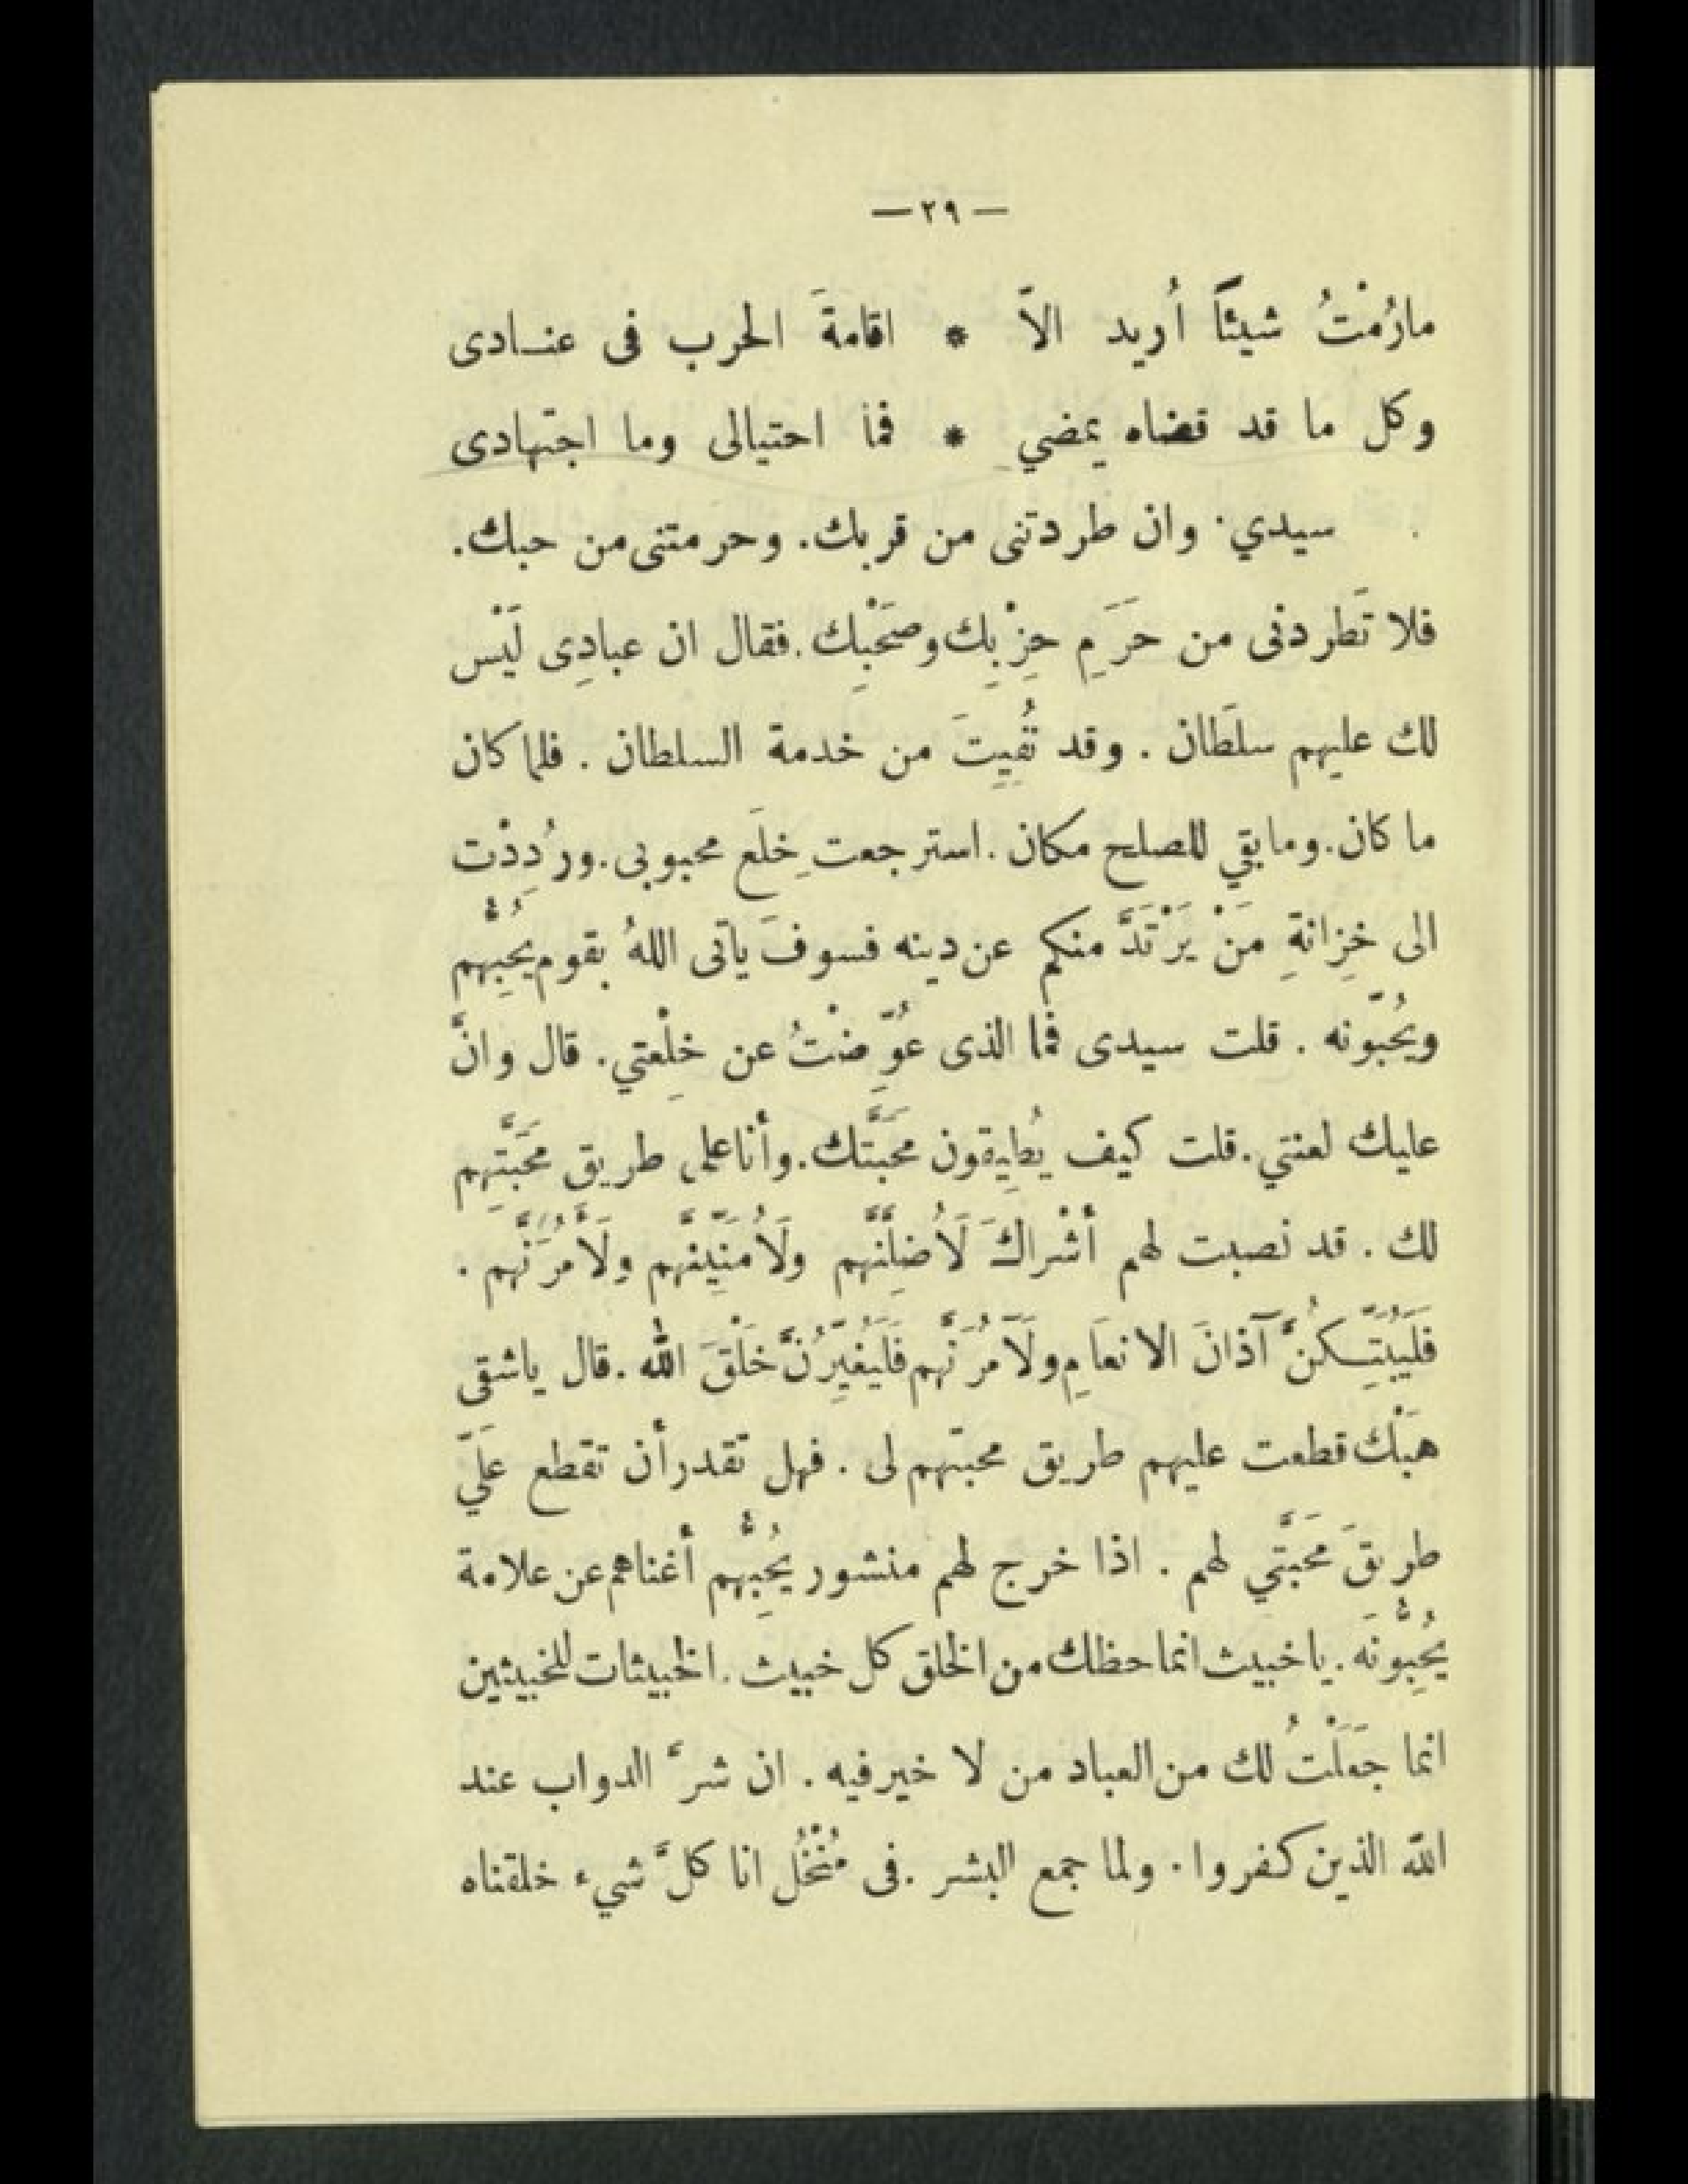 — ٢٩ —
مارُمْتُ شيئاً أُريد الاّ * اقامةَ الحرب فى عنـادى
وكل ما قد قضاه يمضي * فما احتيالى وما اجتهادى
سيدي. وان طردتنى من قربك. وحرمتنى من حبك.
فلا تَطردنى من حَرَمِ حِزْبِك وصَحْبِك. فقال ان عبادِى لَيْس
لك عليهم سلَطان. وقد نُفِيِتَ من خدمة السلطان. فلما كان
ما كان. وما بقي للصلح مكان. استرجعت خِلَع محبوبى. ورُدِدْت
الى خِزانةِ مَنْ يَرْتَدَّ منكم عن دينه فسوفَ يأتى اللهُ بقوم يُحِبُّهم
ويُحبّونه. قلت سيدى فما الذى عُوِّضْتُ عن خِلْعتي. قال وانَّ
عليك لعنتي. قلت كيف يُطِيقون مَحَبَّتك. وأنا على طريق مَحَبَّتِهم
لك. قد نصبت لهم أشْراكَ لَأُضِلَّنَّهم ولَأُمَنِّيَنَّهم ولَأَمُرَنَّهم.
فلَيُبَتِّـكُنَّ آذانَ الانعَامِ ولَآمُرَنَّهم فَلَيُغيِّرُنَّ خَلْقَ الله. قال ياشقى
هبْك قطعت عليهم طريق محبتّهم لى. فهل تقدر أن تقطع عَلَيّ
طريقَ مَحَبَّتي لهم. اذا خرج لهم منشور يُحِبُّهم أغناهم عن علامة
يُحِبُّونَه. ياخبيث انما حظك من الخلق كل خبيث. الخبيثات للخبيثين
انما جَعَلْتُ لك من العباد من لا خير فيه. ان شرَّ الدواب عند
الله الذين كـفروا. ولما جمع البشر. فى مُنْخُل انا كلَّ شيء خلقناه